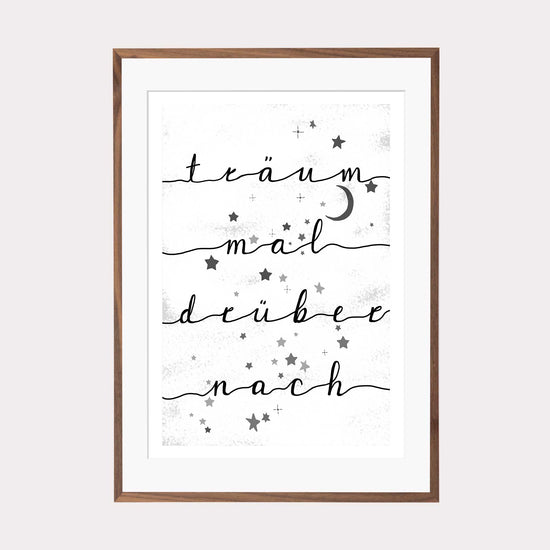 träum
mal
drüber
nach